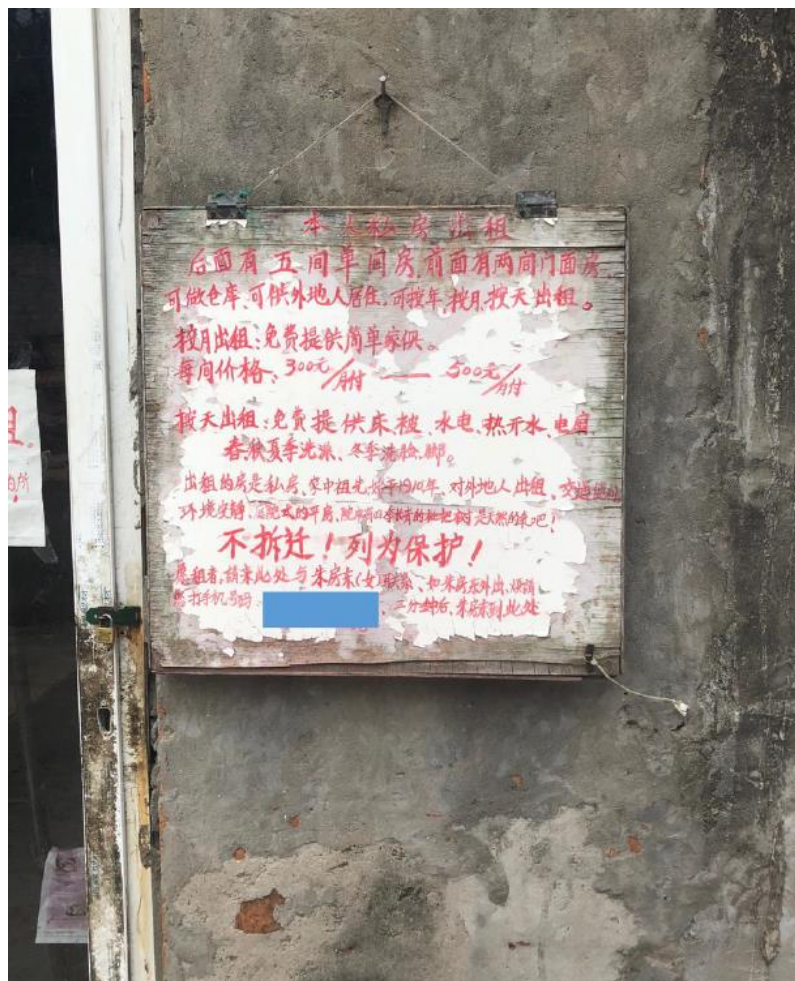 本人私房出租
后面有五间单间房,前面有两间门面房,
可做仓库、可供外地人居住,可按年、按月、按天出租。
按月出租:免费提供简单家俱。
每间价格:300元/月付——500元/月付
按天出租:免费提供床被、水电、热开水、电扇
春、秋夏季洗澡、冬季洗脸、脚。
出租的房是私房、家中祖先 1910年、对外地人出租、交通
环境安静、 院式的平房、 树是天然的氧吧!
不拆迁!列为保护!
愿租者,請来此处与朱房东(女)联系、如朱房东外出、烦請
您打手机号码: 、二分钟后、朱房东到此处
租
所